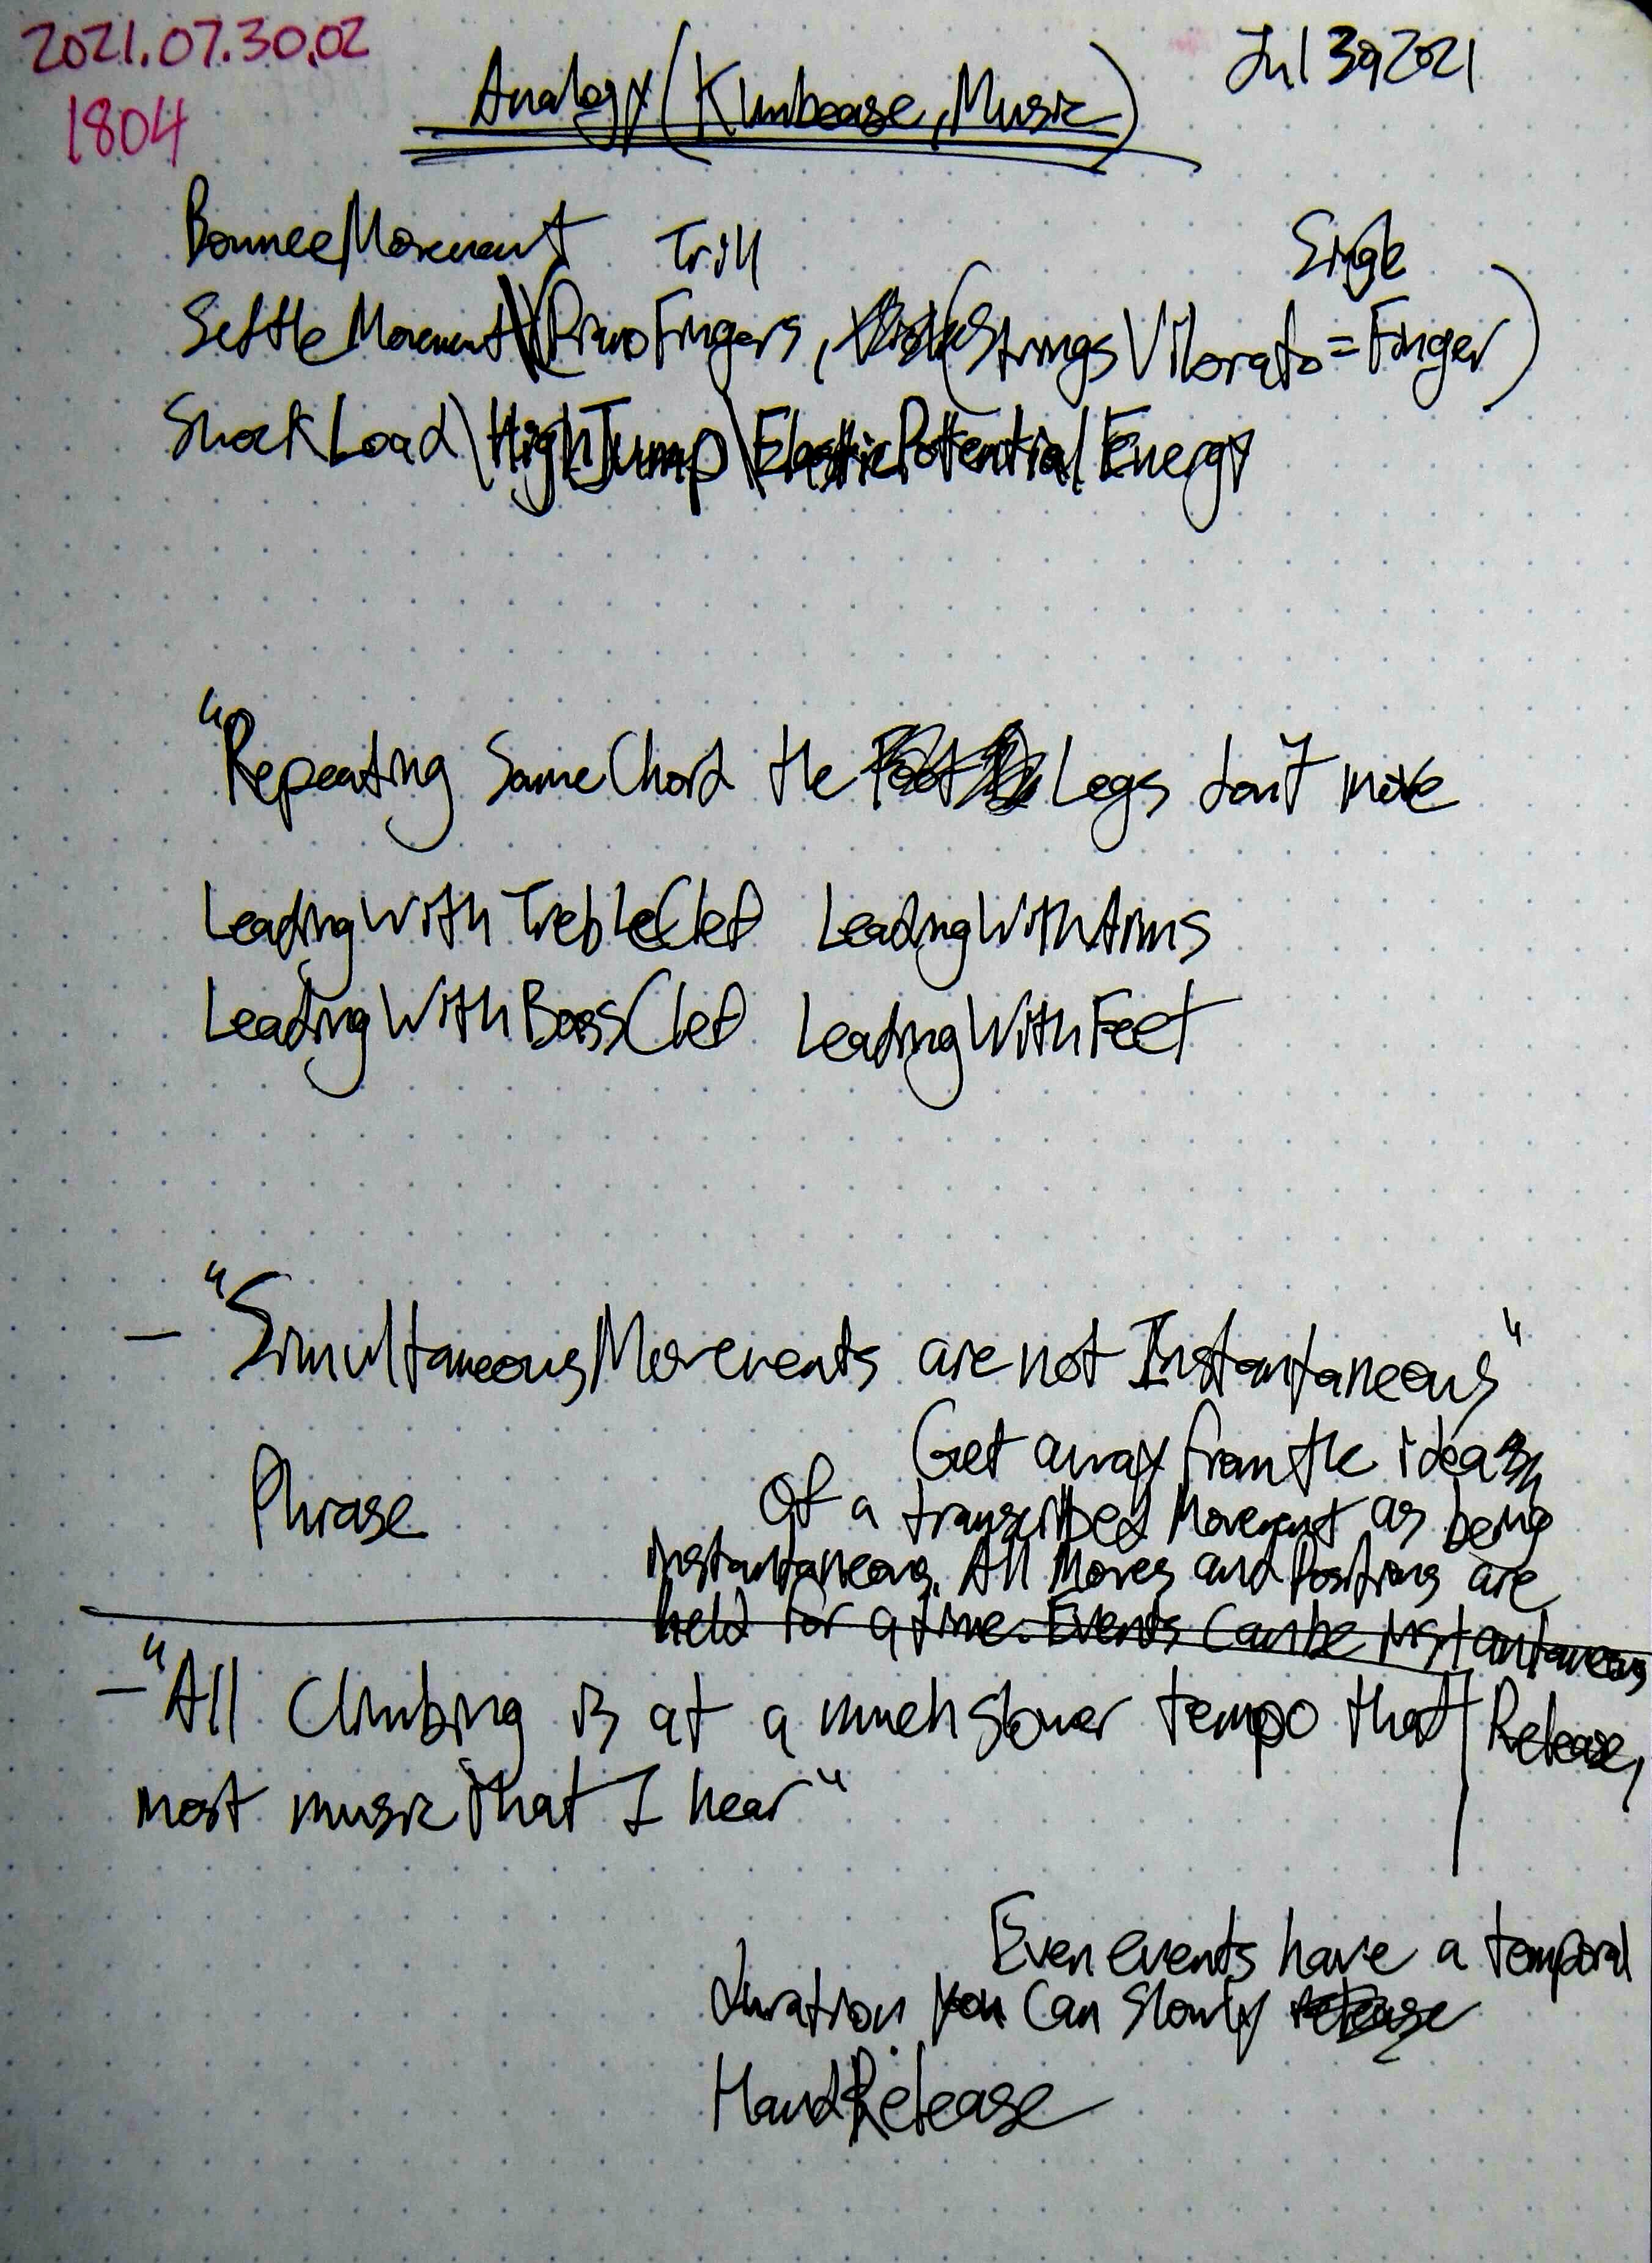 2021.07.30.02
1804
Jul 30, 2021
Analogy(Klimbease, Music)
BounceMovement Trill
Single
SettleMovement\(PianoFingers, (StringsVibrato=Finger)
ShockLoad\HighJump\ElasticPotentialEnergy
"Repeating SameChord the Legs don't move
LeadingWithTrebleClef LeadingWithArms
LeadingWithBassClef LeadingWithFeet
— "SimultaneousMovements are not Instantaneous"
Phrase
Get away from the idea
of a transcribed Movement as being
instantaneous. All Moves and Positions are
held for a time. Events Can be instantaneous
Release,
— "All Climbing is at a much slower tempo that
most music that I hear"
Even events have a temporal
duration you Can Slowly release
HandRelease